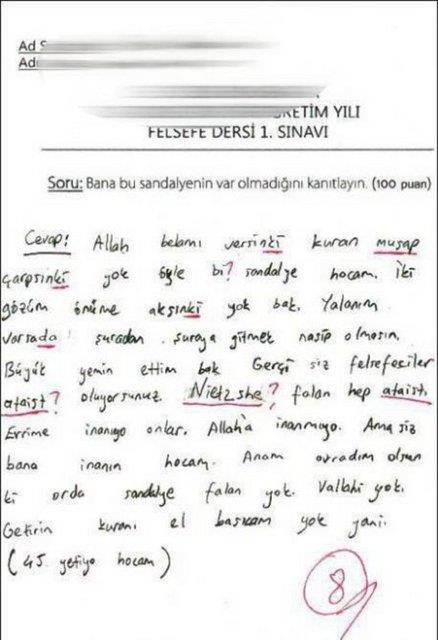 Ad
Ad
ÖĞRETİM YILI
FELSEFE DERSİ 1. SINAVI
Soru: Bana bu sandalyenin var olmadığını kanıtlayın. (100 puan)
Cevap: Allah belamı versinki kuran musap
çarpsinki yok öyle bi? sandalye hocam. İki
gözüm önüme aksınki yok bak. Yalanım
varsada şuradan şuraya gitmek nasip olmasın.
Büyük yemin ettim bak Gerçi siz felsefeciler
ataist? oluyorsunuz. Nietzshe? falan hep ataist.
Evrime inanıyo onlar. Allah'a inanmıyo. Ama siz
bana inanın hocam. Anam avradım olsun
ki orda sandalye falan yok. Vallahi yok.
Getirin kuranı el basıcam yok yani.
(45 yetiyo hocam)
8